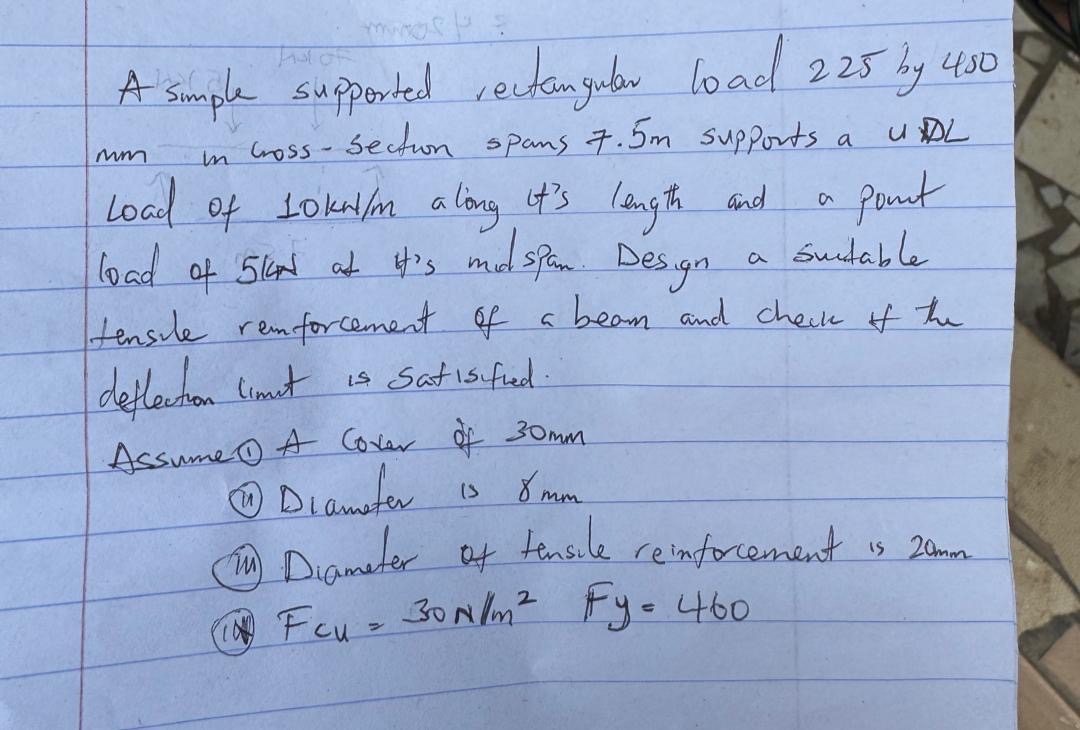 A simple supported rectangular load 225 by 450
mm in cross-section spans 7.5m supports a UDL
Load of 10kN/m along it's length and a point
load of 5kN at it's mid span. Design a suitable
tensile reinforcement of a beam and check if the
deflection limit is satisified.
Assume ① A Cover of 30mm
ⅱ Diameter is 8mm
ⅲ Diameter of tensile reinforcement is 20mm
ⅳ Fcu = 30N/m² Fy = 460